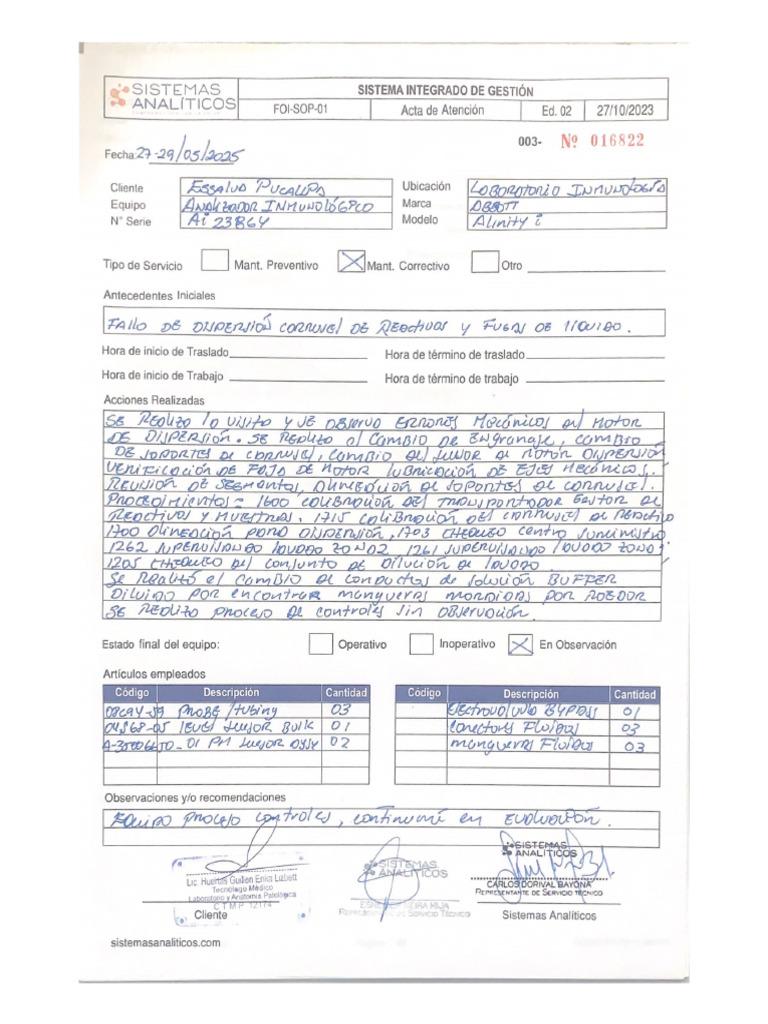 SISTEMAS ANALÍTICOS
SISTEMA INTEGRADO DE GESTIÓN
FOI-SOP-01 Acta de Atención Ed. 02 27/10/2023
003- Nº 016822
Fecha: 27-29/05/2025
Cliente ESSALUD PUCALLPA Ubicación LABORATORIO INMUNOLOGÍA
Equipo ANALIZADOR INMUNOLÓGICO Marca ABBOTT
N° Serie Ai 23864 Modelo Alinity i
Tipo de Servicio Mant. Preventivo Mant. Correctivo Otro
Antecedentes Iniciales
FALLO DE DISPERSIÓN CARRUSEL DE REACTIVOS Y FUGAS DE LÍQUIDO.
Hora de inicio de Traslado Hora de término de traslado
Hora de inicio de Trabajo Hora de término de trabajo
Acciones Realizadas
SE REALIZO LA VISITA Y SE OBSERVO ERRORES MECÁNICOS EN MOTOR
DE DISPERSIÓN. SE REALIZO EL CAMBIO DE ENGRANAJE, CAMBIO
DE SOPORTES DE CARRUSEL, CAMBIO DE SENSOR DE MOTOR DISPERSIÓN
VERIFICACIÓN DE FAJA DE MOTOR LUBRICACIÓN DE EJES MECÁNICOS.
REVISIÓN DE SEGMENTOS, ALINEACIÓN DE SOPORTES DE CARRUSEL.
PROCEDIMIENTOS = 1600 CALIBRACIÓN DEL TRANSPORTADOR GESTOR DE
REACTIVOS Y MUESTRAS, 1715 CALIBRACIÓN DEL CARRUSEL DE REACTIVO
1700 ALINEACIÓN PARA DISPERSIÓN, 1703 CHEQUEO CENTRO SUMINISTRO
1262 SUPERVISANDO LAVADO ZONA2, 1261 SUPERVISANDO LAVADO ZONA1
1205 CHEQUEO DEL CONJUNTO DE DILUCIÓN DE LAVADO.
SE REALIZÓ EL CAMBIO DE CONDUCTOS DE SOLUCIÓN BUFFER
DILUIDO POR ENCONTRAR MANGUERAS MORDIDAS POR ROEDOR
SE REALIZO PROCESO DE CONTROLES SIN OBSERVACIÓN.
Estado final del equipo: Operativo Inoperativo En Observación
Artículos empleados
Código Descripción Cantidad Código Descripción Cantidad
08C94-59 PROBE/tubing 03 ELECTROVALVULA BYPASS 01
04S68-05 LEVEL SENSOR BULK 01 Conectors Fluidos 03
A-35006650-01 PM SENSOR ASSY 02 mangueras Fluidos 03
Observaciones y/o recomendaciones
EQUIPO PROCESO CONTROLES, CONTINUARÉ EN EVALUACIÓN.
Lic. Huertas Guillen Erika Lizbett
Tecnólogo Médico
Laboratorio y Anatomía Patológica
C T M P 12174
Cliente
SISTEMAS ANALÍTICOS
REPRESENTANTE DE SERVICIO TÉCNICO
SISTEMAS ANALÍTICOS
CARLOS DORIVAL BAYONA
REPRESENTANTE DE SERVICIO TÉCNICO
Sistemas Analíticos
sistemasanaliticos.com